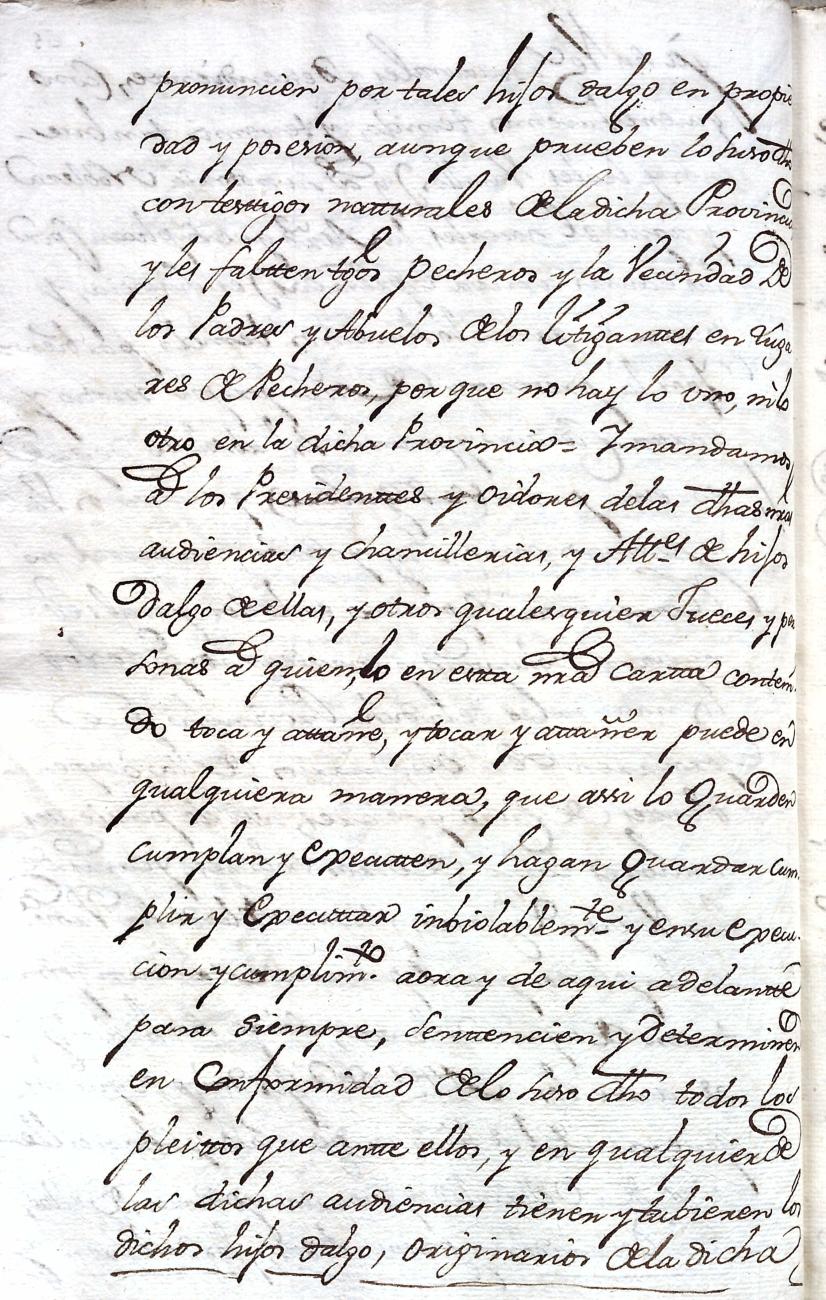 pronuncien por tales hijos dalgo en propie
dad y posesion, aunque prueben lo suso dho
con testigos natturales de la dicha Provincia
y les faltten tgos pecheros y la Vecindad De
los Padres y Abuelos de los littiganttes en Luga
res de Pecheros, por que no hay lo uno, ni lo
otro en la dicha Provincia = Y mandamos
a los Presidenttes y oidores de las dhas nras
audiencias y chancillerias, y Alldes de hijos
Dalgo de ellas, y otros qualesquier Jueces y per
sonas a quien lo en esta nra Cartta conteni
do toca y attañe, y tocar y attañer puede en
qualquiera manera, que assi lo Guarden
cumplan y execuтten, y hagan Guardar cum
plir y Executtar inbiolablemte y en su execu
cion y cumplimto aora y de aqui adelantte
para siempre, senttencien y Determinen
en Conformidad de lo suso dho todos los
pleittos que antte ellos, y en qualquier de
las dichas audiencias tienen y tubieren los
dichos hijos dalgo, originarios de la dicha